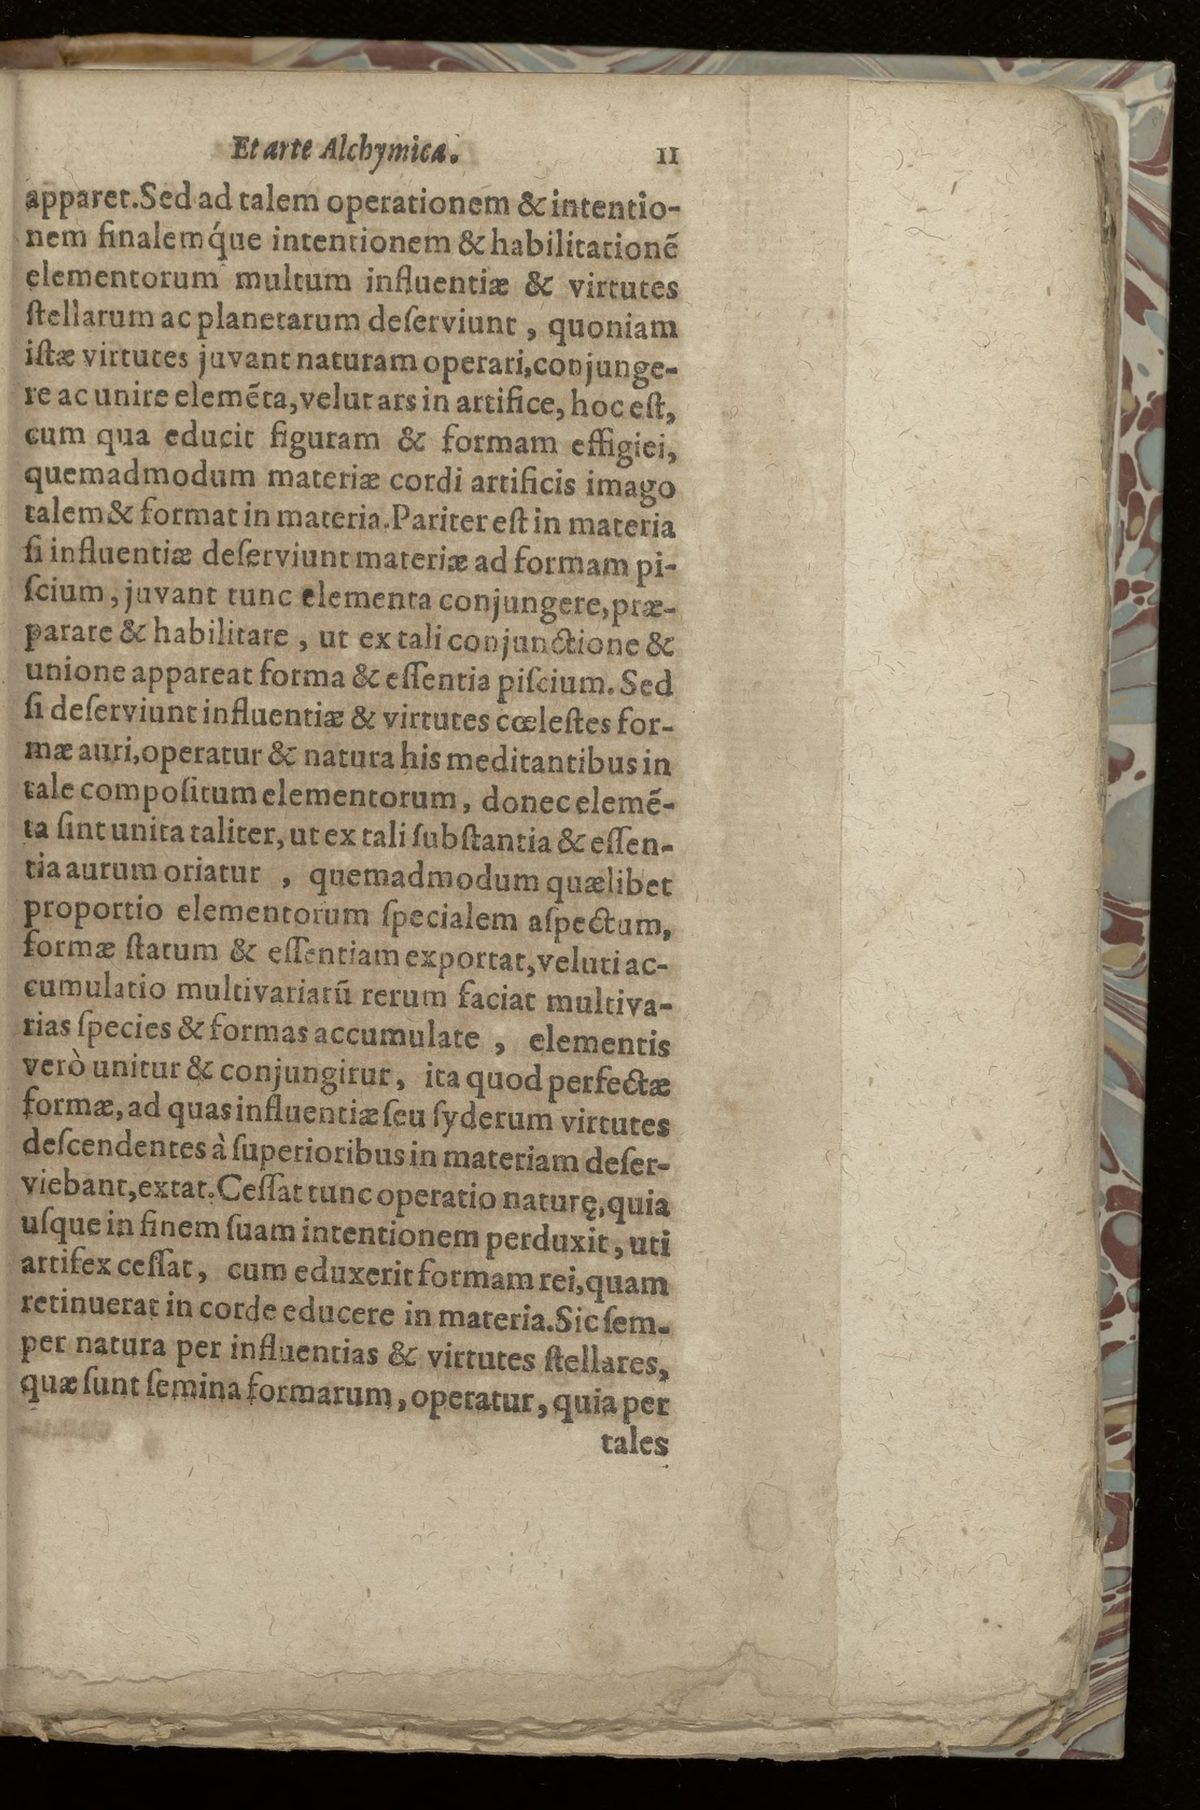 Et arte Alchymica. 11
apparet. Sed ad talem operationem & intentio-
nem finalemq́ue intentionem & habilitationẽ
elementorum multum influentiæ & virtutes
ſtellarum ac planetarum deſerviunt, quoniam
iſtæ virtutes juvant naturam operari, conjunge-
re ac unire elemẽta, velut ars in artifice, hoc eſt,
cum qua educit figuram & formam effigiei,
quemadmodum materiæ cordi artificis imago
talem & format in materia. Pariter eſt in materia
ſi influentiæ deſerviunt materiæ ad formam pi-
ſcium, juvant tunc elementa conjungere, præ-
parare & habilitare, ut ex tali conjunctione &
unione appareat forma & eſſentia piſcium. Sed
ſi deſerviunt influentiæ & virtutes cœleſtes for-
mæ auri, operatur & natura his meditantibus in
tale compoſitum elementorum, donec elemẽ-
ta ſint unita taliter, ut ex tali ſubſtantia & eſſen-
tia aurum oriatur, quemadmodum quælibet
proportio elementorum ſpecialem aſpectum,
formæ ſtatum & eſſentiam exportat, veluti ac-
cumulatio multivariatũ rerum faciat multiva-
rias ſpecies & formas accumulate, elementis
verò unitur & conjungitur, ita quod perfectæ
formæ, ad quas influentiæ ſeu ſyderum virtutes
deſcendentes à ſuperioribus in materiam deſer-
viebant, extat. Ceſſat tunc operatio naturę, quia
uſque in finem ſuam intentionem perduxit, uti
artifex ceſſat, cum eduxerit formam rei, quam
retinuerat in corde educere in materia. Sic ſem-
per natura per influentias & virtutes ſtellares,
quæ ſunt ſemina formarum, operatur, quia per
tales